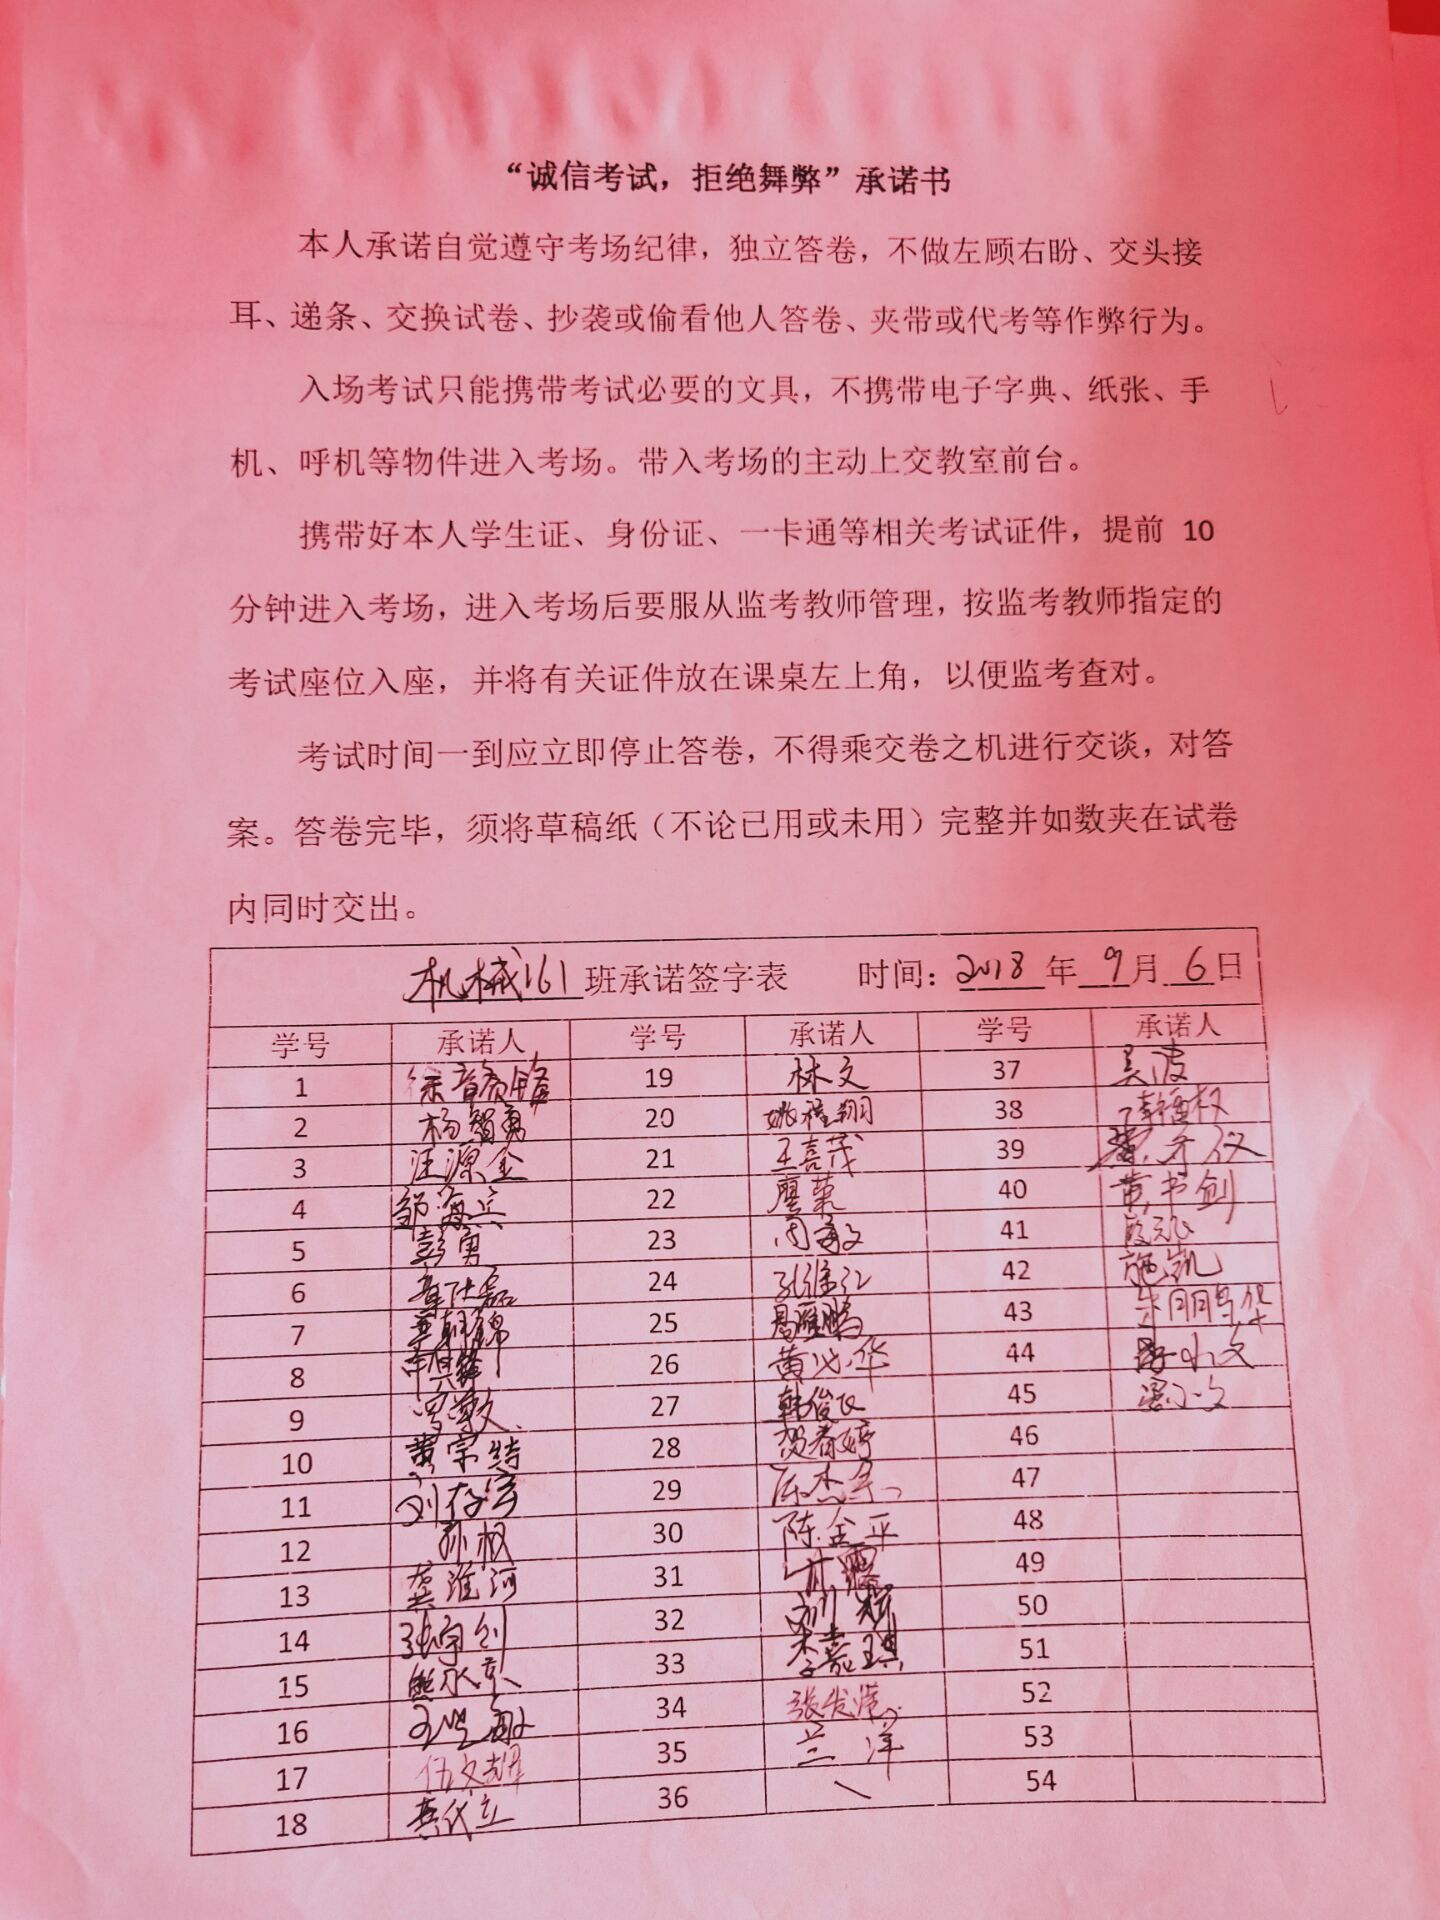 “诚信考试，拒绝舞弊”承诺书
本人承诺自觉遵守考场纪律，独立答卷，不做左顾右盼、交头接
耳、递条、交换试卷、抄袭或偷看他人答卷、夹带或代考等作弊行为。
入场考试只能携带考试必要的文具，不携带电子字典、纸张、手
机、呼机等物件进入考场。带入考场的主动上交教室前台。
携带好本人学生证、身份证、一卡通等相关考试证件，提前 10
分钟进入考场，进入考场后要服从监考教师管理，按监考教师指定的
考试座位入座，并将有关证件放在课桌左上角，以便监考查对。
考试时间一到应立即停止答卷，不得乘交卷之机进行交谈，对答
案。答卷完毕，须将草稿纸（不论已用或未用）完整并如数夹在试卷
内同时交出。
机械161班承诺签字表 时间：2018年9月6日
学号 承诺人 学号 承诺人 学号 承诺人
1 19 林文 37 吴波
2 杨智勇 20 姚程翔 38
3 汪源金 21 王喜茂 39
4 邹海兵 22 廖荣 40 黄书剑
5 彭勇 23 周敏 41
6 章仕磊 24 42 施凯
7 25 43 朱鹏华
8 26 黄必华 44
9 27 韩俊民 45
10 黄宗特 28 贺春婷 46
11 刘存宇 29 47
12 孙权 30 陈金平 48
13 龚淮河 31 甘露 49
14 张宇剑 32 50
15 熊永京 33 李嘉琪 51
16 34 张发满 52
17 伍文超 35 兰洋 53
18 龚代立 36 54